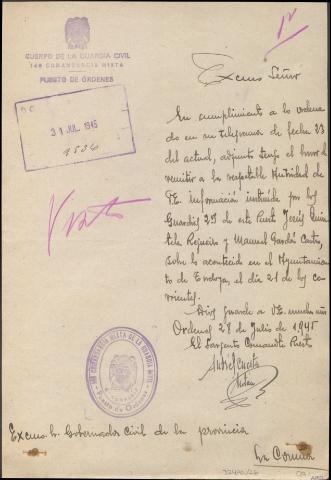 CUERPO DE LA GUARDIA CIVIL
140 COMANDANCIA MIXTA
PUESTO DE ÓRDENES
31 JUL. 1945
Excmo Señor
En cumplimiento a lo ordena
do en su telegrama de fecha 23
del actual, adjunto tengo el honor de
remitir a la respetable Autoridad de
V.E. información instruida por los
Guardias 2os de este Puesto Jesús Quin
tela Regueiro y Manuel Gandón Castro,
sobre lo acontecido en el Ayuntamien
to de Tordoya, el día 21 de los co
rrientes.
Dios guarde a V.E. muchos años
Ordenes 28 de Julio de 1945
El Sargento Comandte Puesto
COMANDANCIA MIXTA DE LA GUARDIA CIVIL
Puesto de Ordenes
Excmo Sr. Gobernador Civil de la provincia
La Coruña